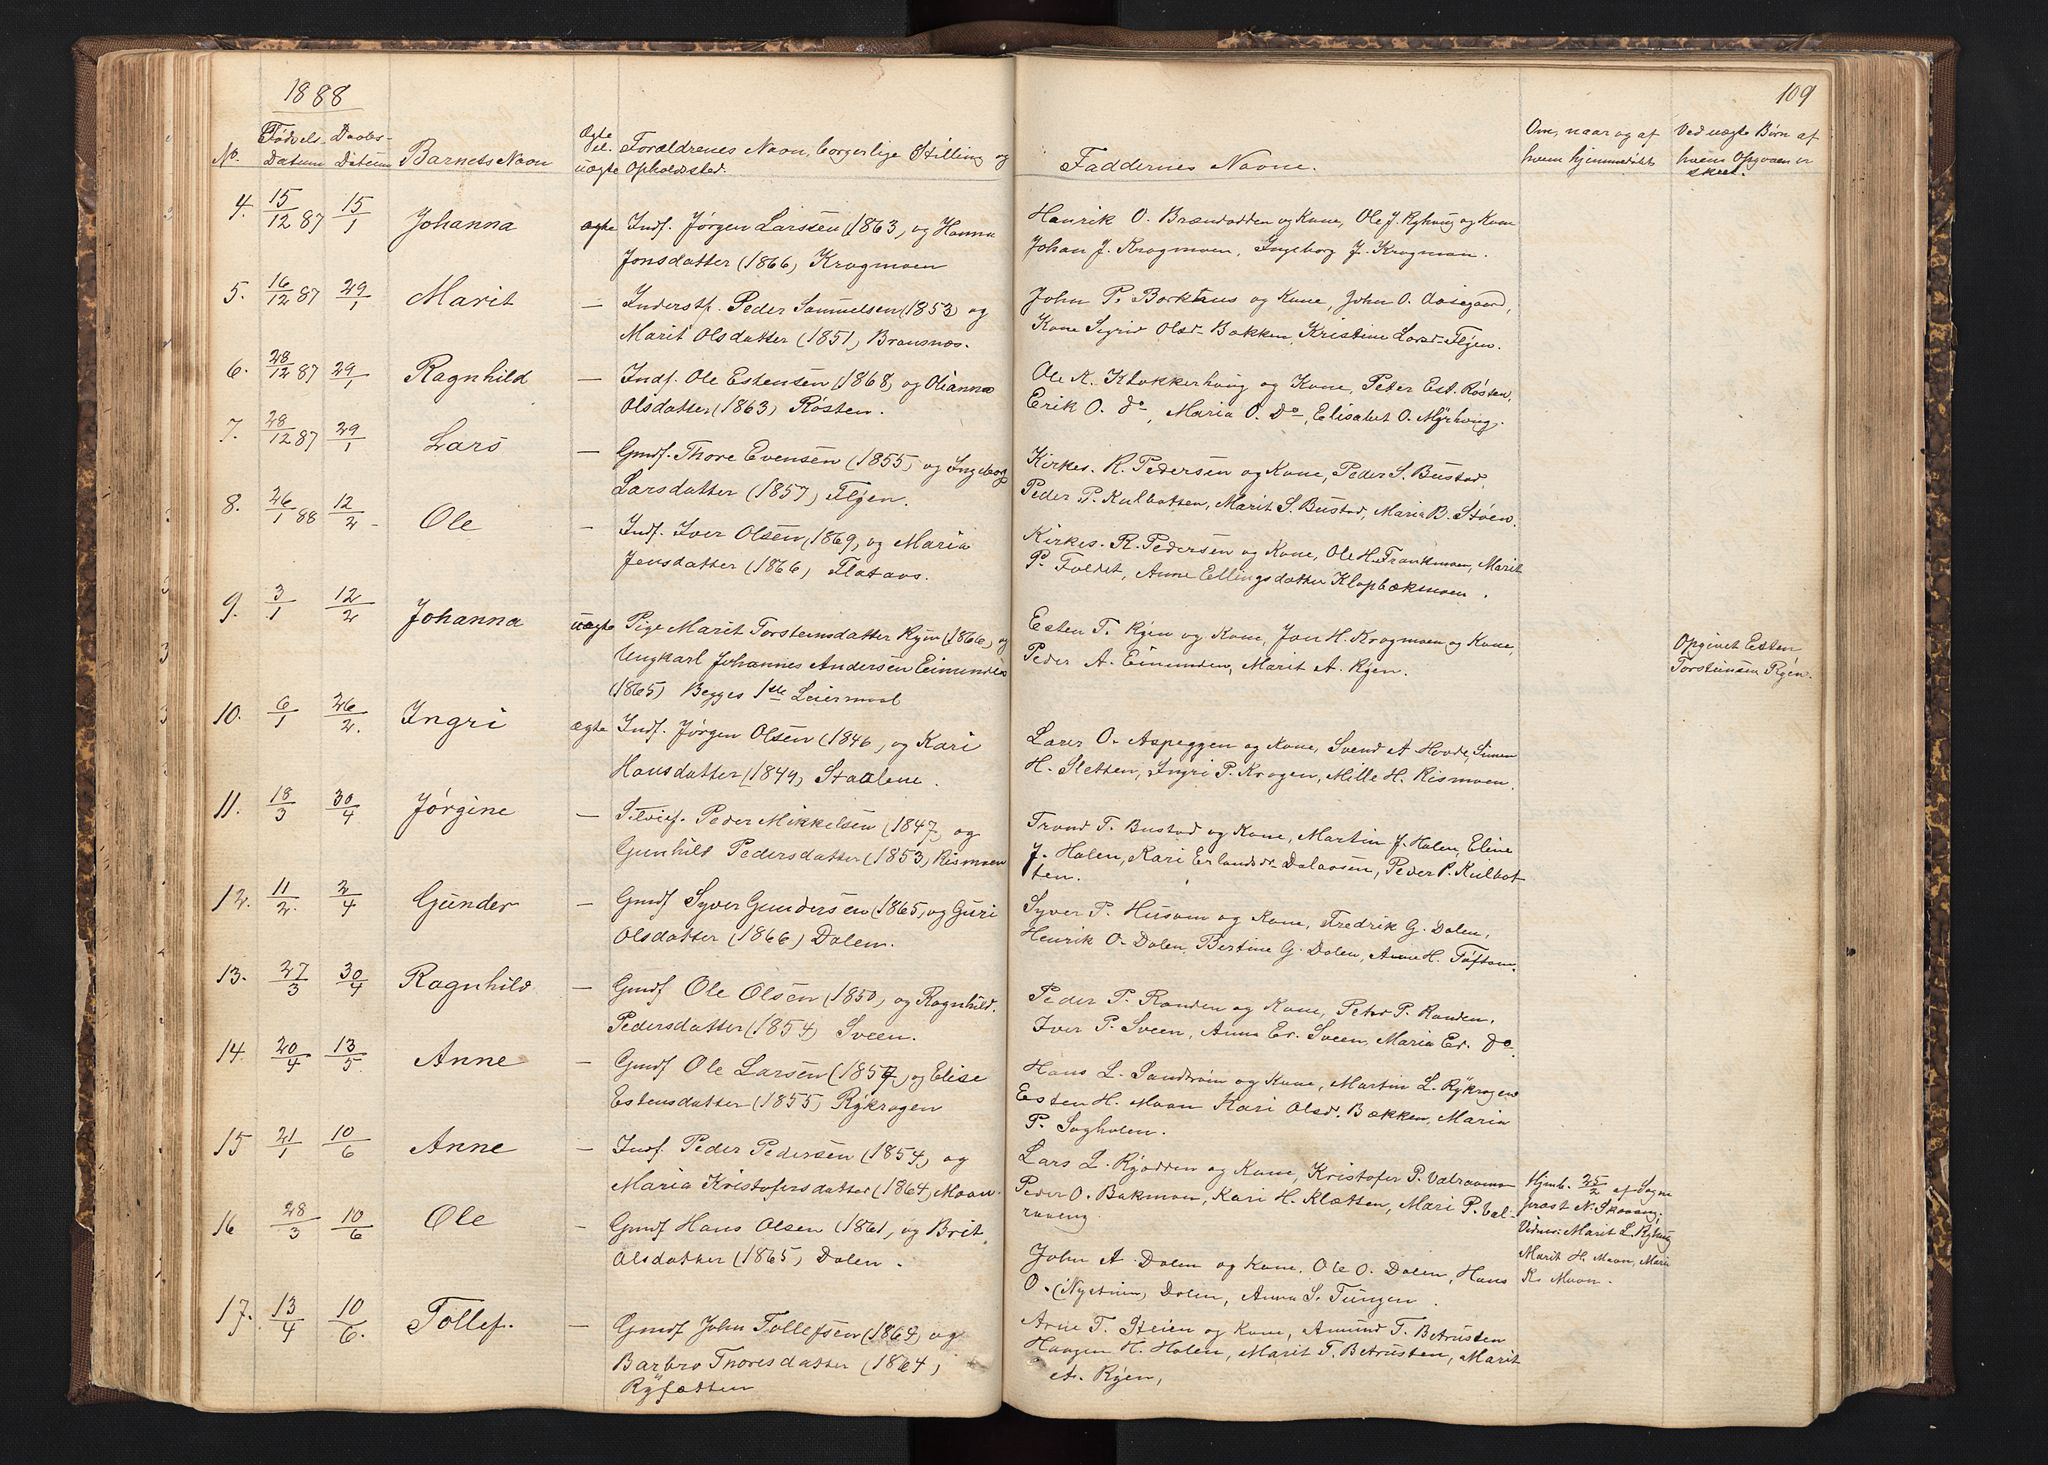 1888
109
No. Fødsels Datum Daabs-Datum Barnets Navn Ægte el. uægte Forældrenes Navn, borgerlige Stilling og Opholdssted. Faddernes Navne. Om, naar og af hvem hjemmedøbt Ved uægte Børn af hvem Opgaven er skeet.
4. 15/12 87 15/1 Johanna ægte Indf. Jørgen Larssen (1863) og Hanna
Jonsdatter (1866) Krogmoen
Henrik O. Brændadden og Kone, Ole J. Ryhaug og Kone
Johan J. Krogmoen, Ingeborg J. Krogmoen.
5. 16/12 87 29/1 Marit — Inderstf. Peder Samuelsen (1853) og
Marit Olsdatter (1851) Bransnos.
John P. Borkhus og Kone, John O. Aasegaard,
Kone Sigrid Olsd. Bakken, Kristine Larsd. Fløen.
6. 28/12 87 29/1 Ragnhild — Indf. Ole Estensen (1868) og Olianna
Olsdatter (1863) Røsten.
Ole K. Klokkerhaug og Kone, Peter Est. Røsten,
Erik O. do, Maria O. Do, Elisabet O. Myrhaug.
7. 28/12 87 29/1 Lars — Gmdf. Thore Evensen (1855) og Ingeborg
Larsdatter (1857) Fløen.
Kirkes. R. Pedersen og Kone, Peder S. Bustad,
Peder P. Kulbotten, Marit S. Bustad, Maria B. Støen.
8. 26/1 88 12/2 Ole — Indf. Iver Olsen (1869) og Maria
Jensdatter (1866) Flataas.
Kirkes. R. Pedersen og Kone, Ole H. Frankmoen, Marit
P. Foldet, Anne Ellingsdatter Klopbækmoen.
9. 3/1 12/2 Johanna uægte Pige Marit Torsteinsdatter Ryen (1866) og
Ungkarl Johannes Andersen Eimunden
(1865) Begges 1ste Leiermaal
Esten T. Ryen og Kone, Jon H. Krogmoen og Kone,
Peder A. Eimunden, Marit A. Ryen.
Opgivet Esten
Torsteinsen Ryen.
10. 6/1 26/2. Ingri ægte Indf. Jørgen Olsen (1846) og Kari
Hansdatter (1849) Staalene.
Lars O. Aspeggen og Kone, Svend A Hovde, Simen
H. Sletten, Ingri P. Krogen, Mille H. Rismoen.
11. 18/3 30/4 Jørgine — Selveief. Peder Mikkelsen (1847) og
Gunhild Pedersdatter (1853) Rismoen
Trond T. Bustad og Kone, Martin J. Holen, Eline
J. Holen, Kari Erlandsdr. Dalaasen, Peder P. Kulbot
ten.
12. 11/2. 2/4 Gunder — Gmdf Syver Gundersen (1865) og Guri
Olsdatter (1866) Dalen.
Syver P. Husom og Kone, Fredrik G. Dalen,
Henrik O. Dalen, Bertine G. Dalen, Anne H. Toftom.
13. 27/3 30/4 Ragnhild — Gmdf Ole Olsen (1850) og Ragnhild.
Pedersdatter (1854) Sveen.
Peder P. Randen og Kone, Peter P. Randen,
Iver P. Sveen, Anna Er. Sveen, Maria Er. do.
14. 20/4 13/5. Anne — Gmdf Ole Larsen (1857) og Elise
Estensdatter (1855) Rykrogen
Hans L. Sandtrøin og Kone, Martin L. Rykrogen
Esten H. Moan Kari Olsd. Bækken, Maria
P. Sagholen.
15 21/1 10/6 Anne — Indf. Peder Pedersen (1854) og
Maria Kristofersdatter (1864) Moan.
Lars L. Ryodden og Kone, Kristofer P. Valraamo
Peder O. Bakmoen, Kari H. Kletten, Mari P. Val-
raaeng.
Hjmb. 25/2 af Sogne
præst N. Skaaang;
Vidner: Marit L. Ryhaug
Marit H. Moan, Maria
K. Moan.
16 28/3 10/6 Ole — Gmdf Hans Olsen (1861) og Brit.
Olsdatter (1865) Dalen.
John A. Dalen og Kone, Ole O. Dalen, Hans
O. (Nystuen) Dalen, Anna S. Tungen.
17. 13/4 10/6. Tollef. — Gmdf John Tollefsen (1864) og
Barbro Thoresdatter (1864)
Ryfætten
Arne T. Steien og Kone, Amund T. Betusten
Haagen H. Holen, Marit T. Betusten, Marit
A. Ryen,